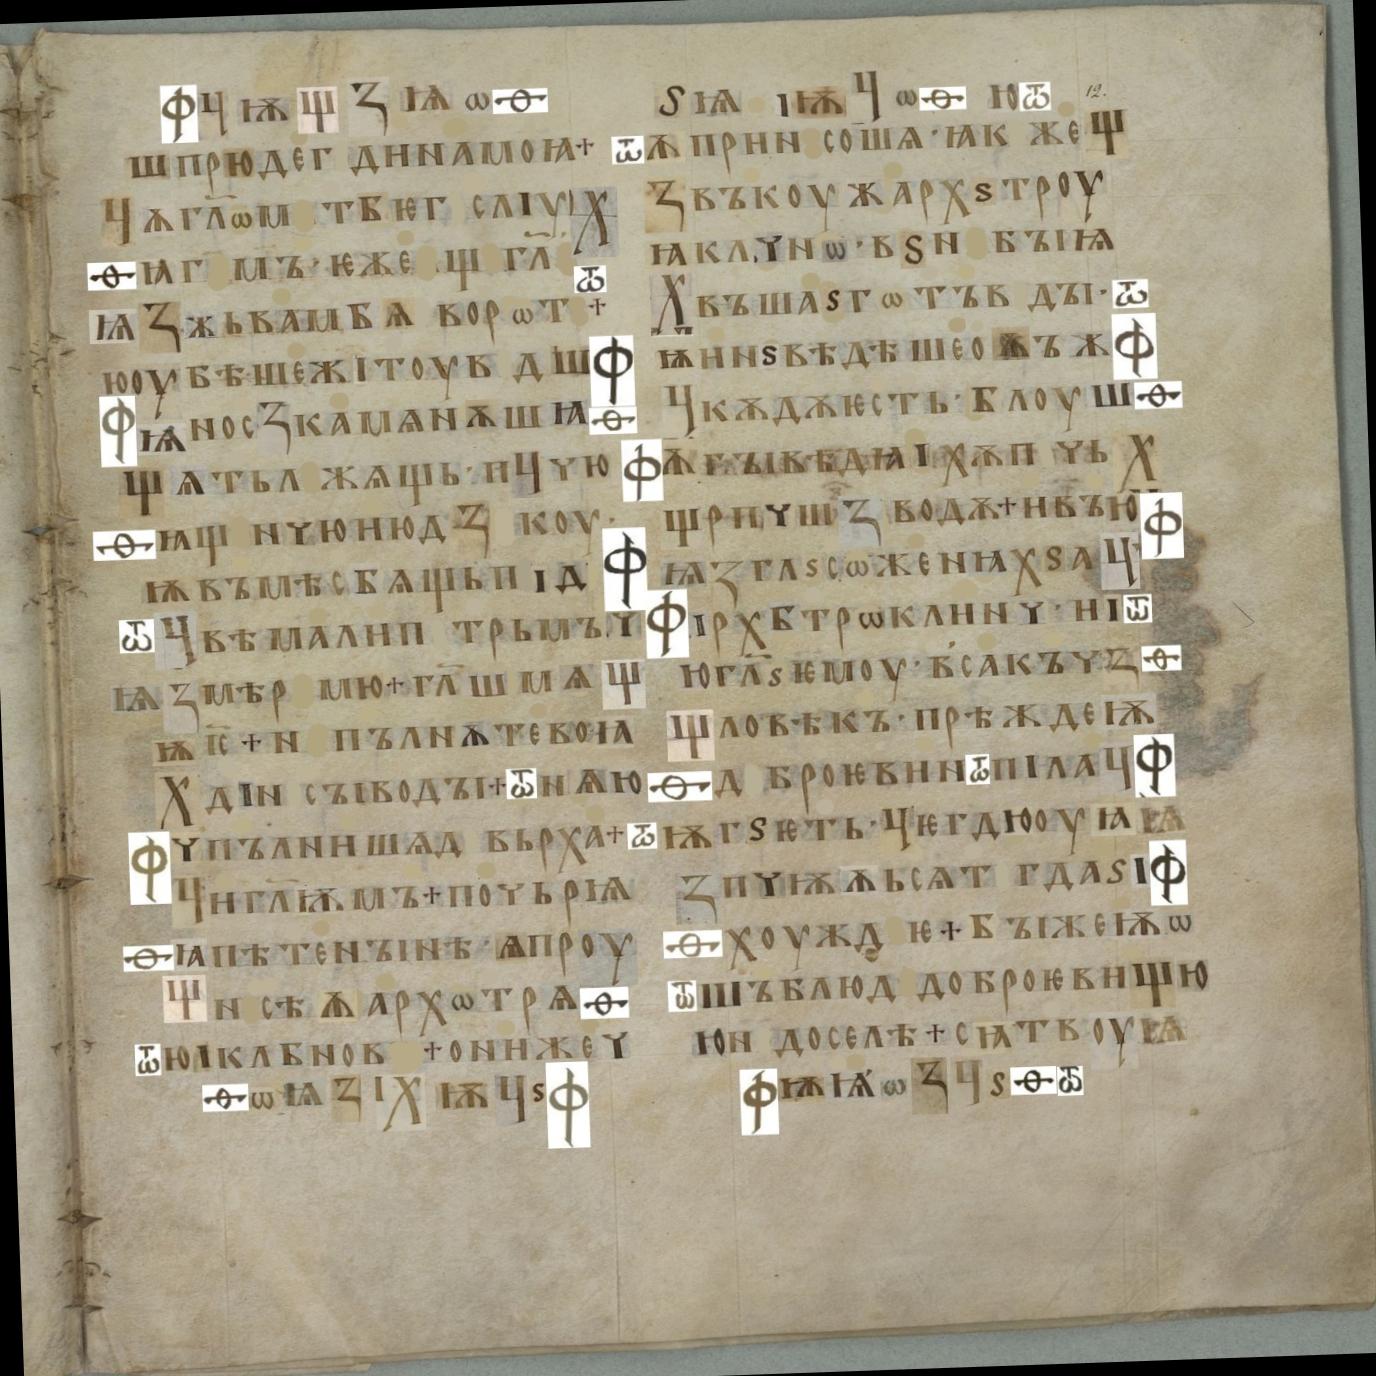 ФЧѬѰꙀѨѡѲ
ШПРЮДЕГ ДИНАМОꙖ+
ЧѦГЛ҃ѠМ ТВѤГ СЛІУХ
ѲꙖГ МЪ·ѤЖЕ ѰГЛ҃Ѿ
ѨꙀЖЬВАМБѦ ВОРѠТ+
ЮОУБѢШЕЖІТОУВ ДШФ
ФѬНОСꙀКАМѦНѦШꙖѲ
ѰѦТЬЛ ЖѦЩЬ·ПЧҮЮ
ѲꙖЩ НҮЮНЮДꙀ КОУ·
ѬВЪМѢСБѦЩЬПІДФ
ѾЧВѢМАЛИП ТРЬМЪҮ
ѨꙀМѢР МЮ+ГЛ҃ШМѦѰ
ѬІС҃+Н ПЪЛНѦТЕВОꙖ
ХДІН СЪІВОДЪІ+ѾНѦЮ
ФҮПЪЛНИШѦД ВЬРХА+
ЧИГЛ҃ѬМЪ+ПОҮЬРѨ
ѲꙖПѢТЕНЪІНѢ·ѦПРОУ
ѰН СѢѦАРХѠТРѦѲ
ѾЮІКЛБНОВ +ОНИЖЕҮ
ѲѠѨꙀІХѬЧЅФ
ЅѨ ІѬЧѠѲ ЮѾ
ѾѦПРИН СОШѦ·ꙖК ЖЕѰ
ꙀВЪКОУЖАРХЅТРОУ
ꙖКЛҮНѠ·ВЅН БЪІѨ
ХВЪШАЅГѠТЪВ ДЪІ·Ѿ
ѬННЅВѢДѢШЕОѪЪЖФ
ЧКѪДѪѤСТЬ·БЛОУШѲ
ФѦГЪІВѢДꙖІХѪП ҮЬХ
ѰРПҮШꙀ ВОДѪ+НВЪЮФ
ѨꙀГЛЅСѠЖЕНꙖХЅАЧ
ФІРХБТРѠКЛИНҮ·НІѾ
ЮГЛ҃ЅѤМОУ·ВСАКЪҮꙀѲ
ѰЛОВѢКЪ·ПРѢЖДЕѬ
ѲД БРОѤВИНѾПІЛАЧФ
ѾѬГЅѤТЬ·ЧѤГДЮОУꙖѨ
ꙀПҮѬѪЬСѦТ ГДАЅІФ
ѲХОУЖД Ѥ+Б ЪІЖЕѬѠ
ѾШЪБЛЮД ДОБРОѤВИѰЮ
ЮН ДОСЕЛѢ+СꙖТВОУѨ
ФѬѨѠꙀЧЅѲѾ
12.